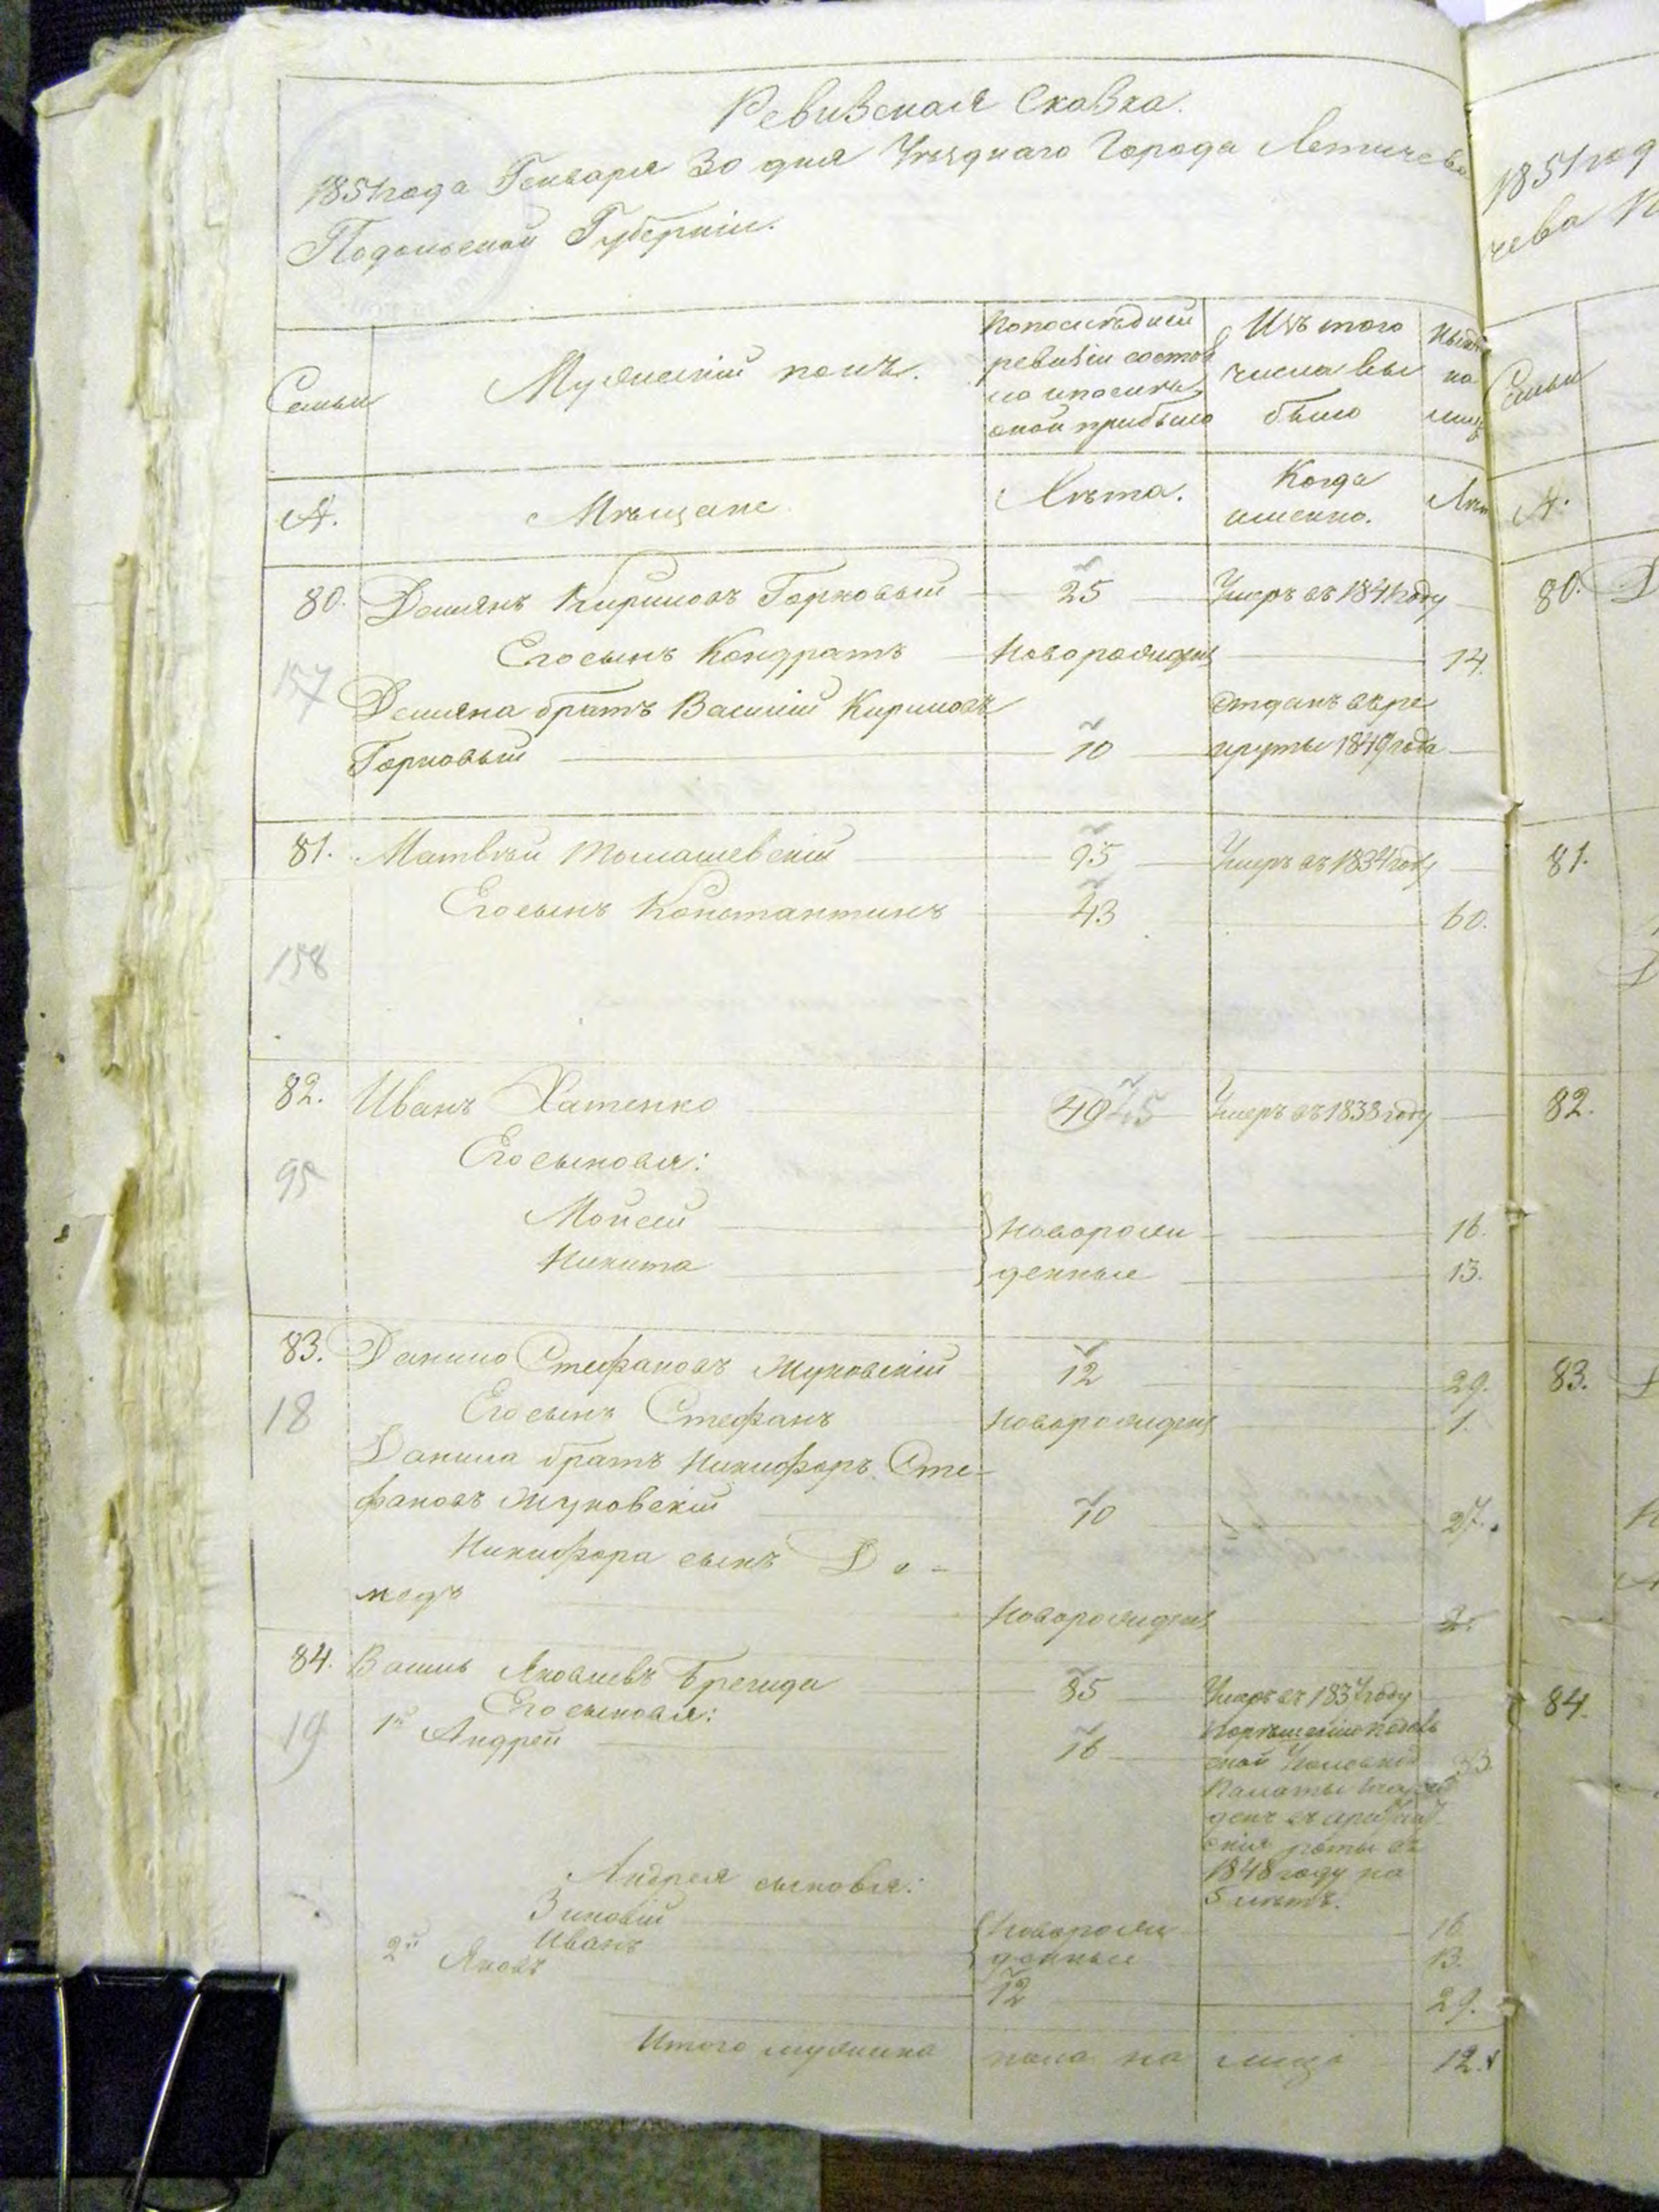 Ревизская Сказка.
1851 года Генваря 30 дня Уезднаго Города Летичева
Подольской Губерніи.
Семьи
Мужескій полъ.
По последней
ревизіи состоя
ло и после
оной прибыло
Изъ того
числа вы
было
Ныне
на
лицо
А.
Мѣщане
Лѣта.
Когда
именно.
Лѣт
80. Демянъ Кириловъ Горковый 25 Умеръ въ 1841 году
Его сынъ Кондратъ Новорожденъ 14.
157
Демяна братъ Василій Кириловъ отданъ в ре
Горковый 10 круты 1849 года
81. Матвѣй Томашевскій 95 Умеръ въ 1834 году
Его сынъ Константинъ 43 60.
158
82. Иванъ Хатенко 49 45 Умеръ въ 1838 году
Его сыновья:
95
Мойсей Новорож 16.
Никита денные 13.
83. Данило Стефановъ Жуковскій 12 29.
18 Его сынъ Стефанъ Новорожденъ 1.
Данила братъ Никифоръ Сте-
фановъ Жуковскій 10 27.
Никифора сынъ Ді-
медъ Новорожденъ 2.
84. Василь Яковлевъ Брегида 85 Умеръ въ 1837 году
Его сыновья:
19 1й Андрей 16 По решенію Подоль
ской Уголовной 33.
Палаты
денъ въ арестант
скія роты въ
1848 году на
5 летъ.
Андрея сыновья:
Зиновій Новорож 16
Иванъ денные 13.
2й Яковъ 12 29.
Итого мужеска пола на лицо 12.
1851 год
чева П
Семьи
А.
80. Д
81.
82.
83.
84.